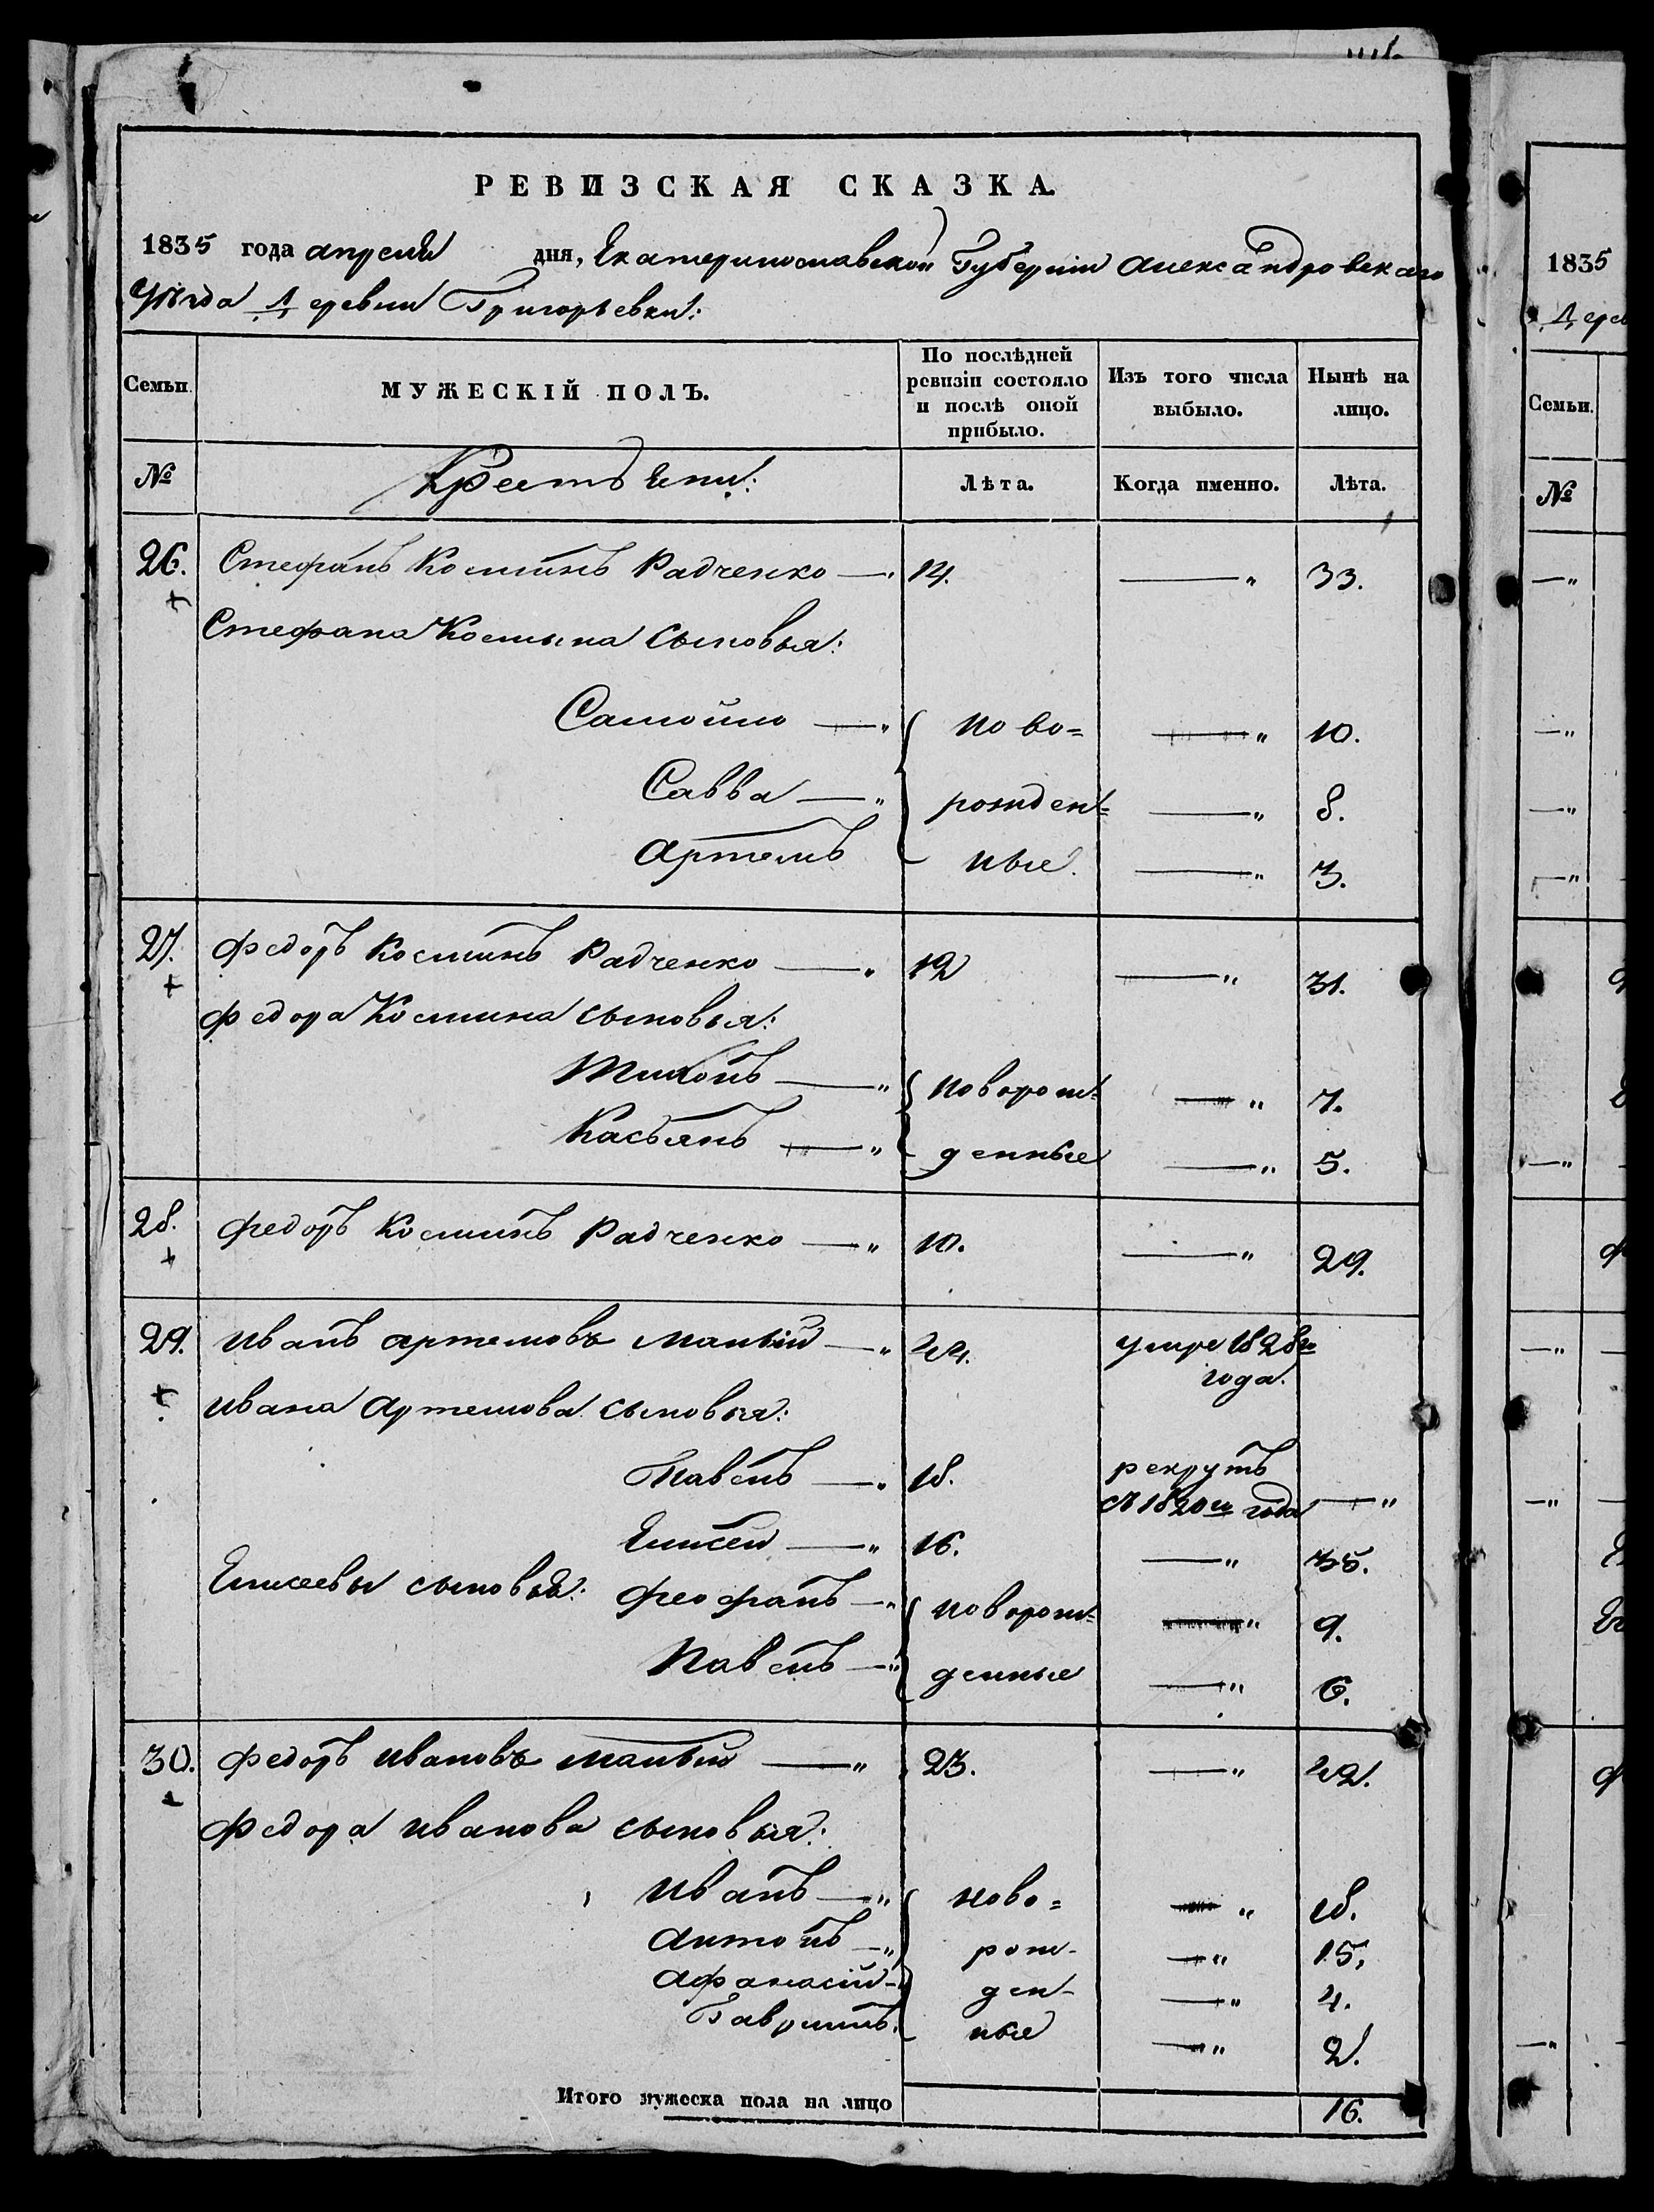 РЕВИЗСКАЯ СКАЗКА.
1835 года апреля дня, Екатеринославской Губерніи Александровскаго
уѣзда Деревни Григорьевки:
Семьи. МУЖЕСКІЙ ПОЛЪ. По послѣдней ревизіи состояло и послѣ оной прибыло. Изъ того числа выбыло. Нынѣ на лицо.
№ Крестьяни: Лѣта. Когда именно. Лѣта.
26. Стефанъ Косминъ Радченко — 14. — " 33.
Стефана Косьмина сыновья:
Самойло — " ново= — " 10.
Савва — " рожден= — " 8.
Артемъ ные. — " 3.
27. Федоръ Косминъ Радченко — " 12 — " 31.
Федора Космина сыновья:
Тихонъ — " поворож= — " 7.
Касьянъ — " денные — " 5.
28. Федоръ Косминъ Радченко — " 10. — " 29.
29. Иванъ Артемовъ Малый — " 44. умре 1828го
года.
Ивана Артемова сыновья:
Павелъ — " 18. рекрутъ
съ 1820го года — "
Елисей — " 16. — " 35.
Елисеевы сыновья: Феофанъ — " новорож= — " 9.
Павелъ — " денные — " 6.
30. Федоръ Ивановъ Малый — " 23. — " 42.
Федора Иванова сыновья:
Иванъ — " ново= — " 18.
Антонъ — " рож- — " 15.
Афанасій - ден- — " 4.
Гаврилъ. ные — " 2.
Итого мужеска пола на лицо 16.
1835
Дерев
Семьи.
№